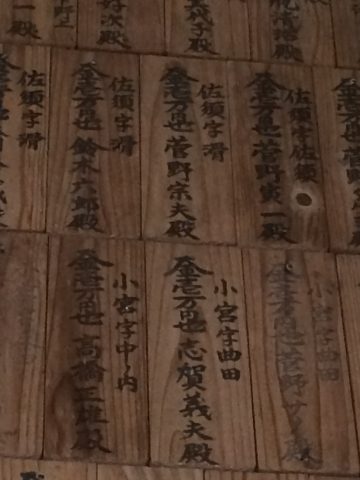 好次殿
代子殿
佐須字佐須
金壱万円也 菅野寅一殿
佐須字滑
金壱万円也 菅野宗夫殿
佐須字滑
金壱万円也 鈴木六郎殿
佐須字滑
小宮字曲田
金壱万円也 菅野
殿
小宮字曲田
金壱万円也 志賀義夫殿
小宮字中ノ内
金壱万円也 高橋正雄殿